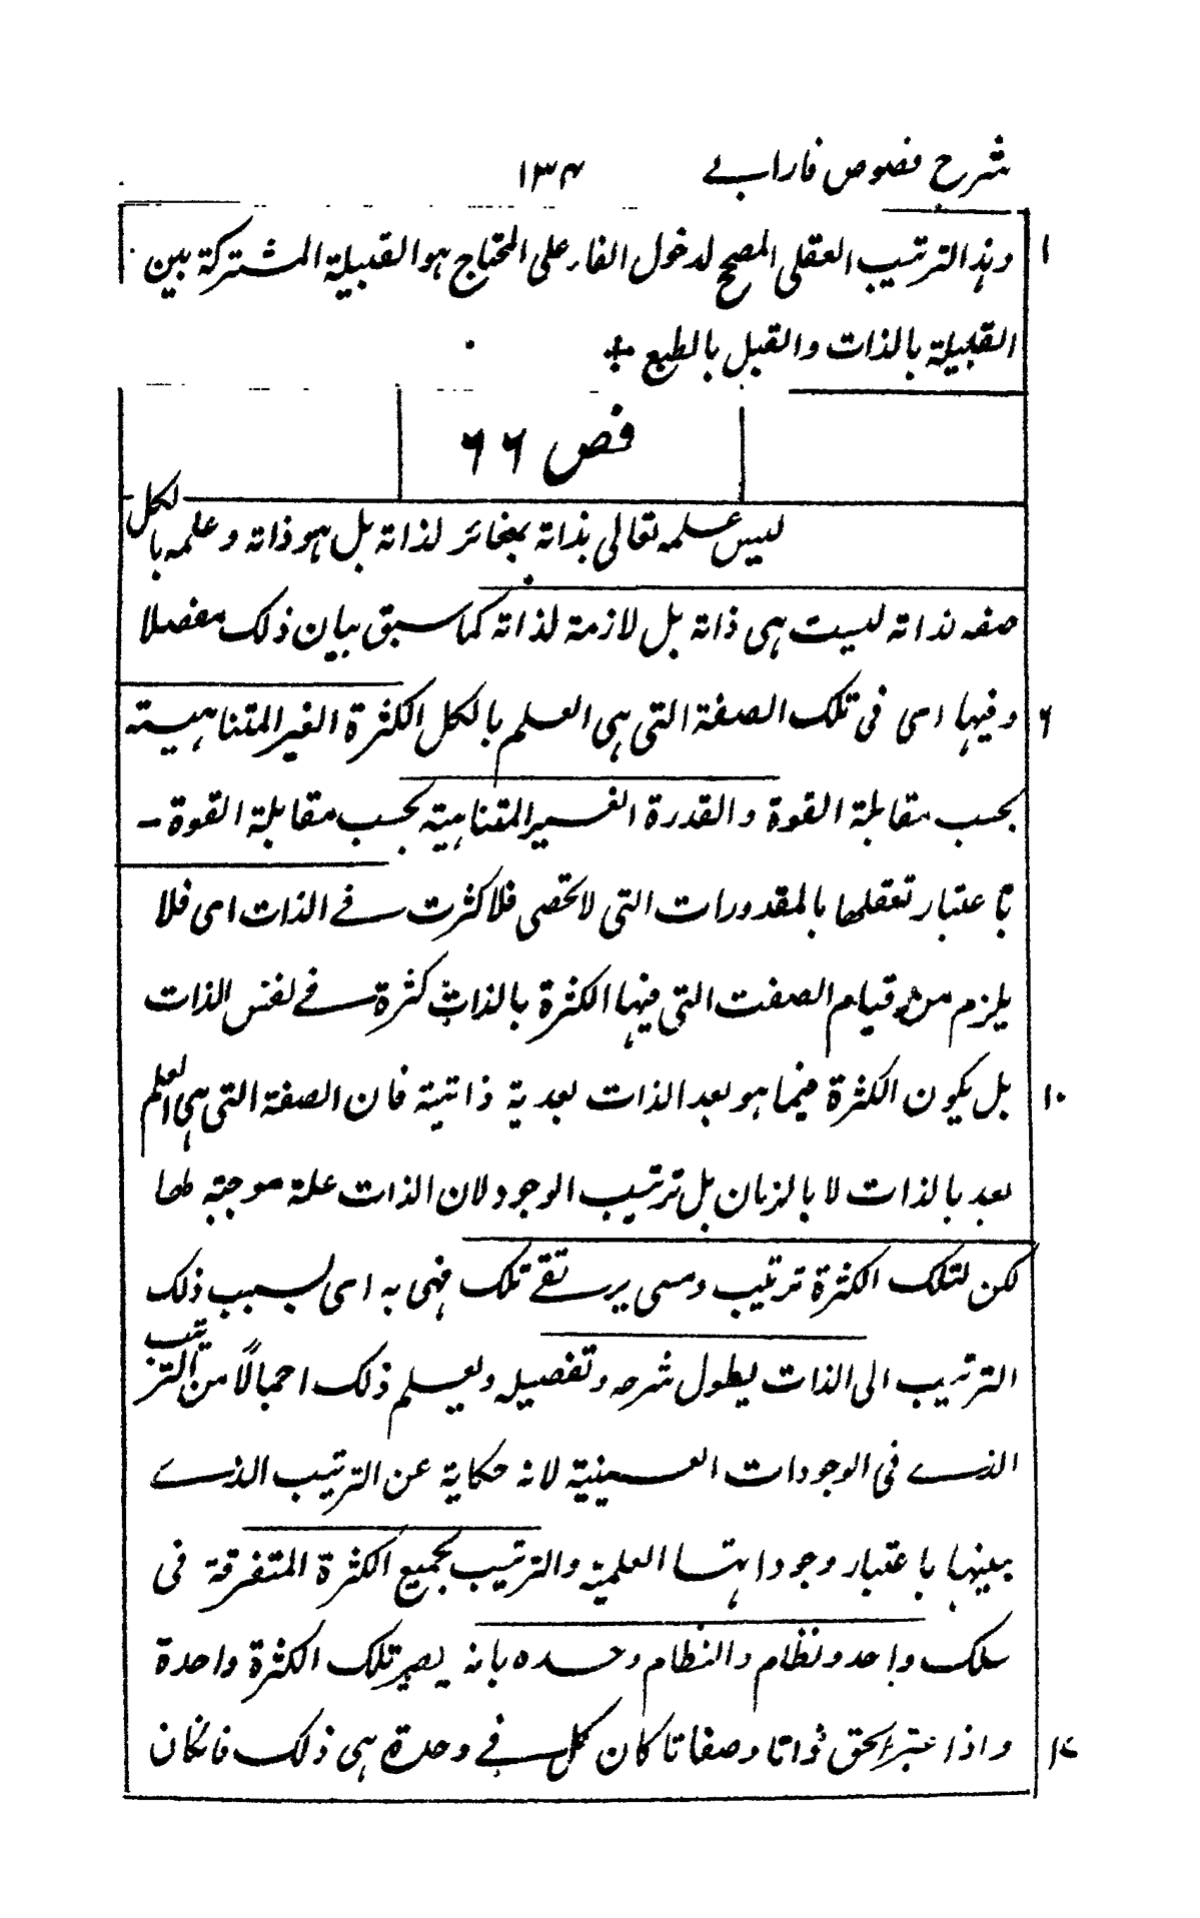 شرح فصوص فارابے ۱۳۴
۱ وہذا الترتیب العقلی المصحح لدخول الفار علی المحتاج ہو القبیلة المشترکة بین
القبیلة بالذات والقبل بالطبع
فص ۶۶
لیس علمہ تعالی بذاتہ بمغائر لذاتہ بل ہو ذاتہ و علمہ بالکل
صفہ لذاتہ لیست ہی ذاتہ بل لازمة لذاتہ کما سبق بیان ذلک مفصلا
۶ وفیہا ای فی تلک الصفة التی ہی العلم بالکل الکثرة الغیر المتناہیتہ
بحسب مقابلة القوة والقدرة الغیر المتناہیة بحسب مقابلة القوة -
باعتبار تعقلہا بالمقدورات التی لاتحصی فلا کثرت فے الذات ای فلا
یلزم من قیام الصفت التی فیہا الکثرة بالذات کثرة فے نفس الذات
۱۰ بل یکون الکثرة فیما ہو بعد الذات بعدیة ذاتیة فان الصفة التی ہی العلم
بعد بالذات لا بالزمان بل ترتیب الوجود لان الذات علة موجبتہ لہا
لکن لتلک الکثرة ترتیب ومسی یرتقے تلک فہی بہ ای بسبب ذلک
الترتیب الی الذات یطول شرحہ وتفصیلہ ویعلم ذلک اجمالًا من الترتیب
الذے فی الوجودات العینیة لانہ حکایة عن الترتیب الذے
بینہا باعتبار وجوداتہا العلمیة والترتیب یجمع الکثرة المتفرقة فی
سلک واحد ونظام والنظام وحدہ بانہ یصیر تلک الکثرة واحدة
۱۷ واذا عتبر الحق ذاتا وصفاتا کان کل فے وحدة ہی ذلک فانکان